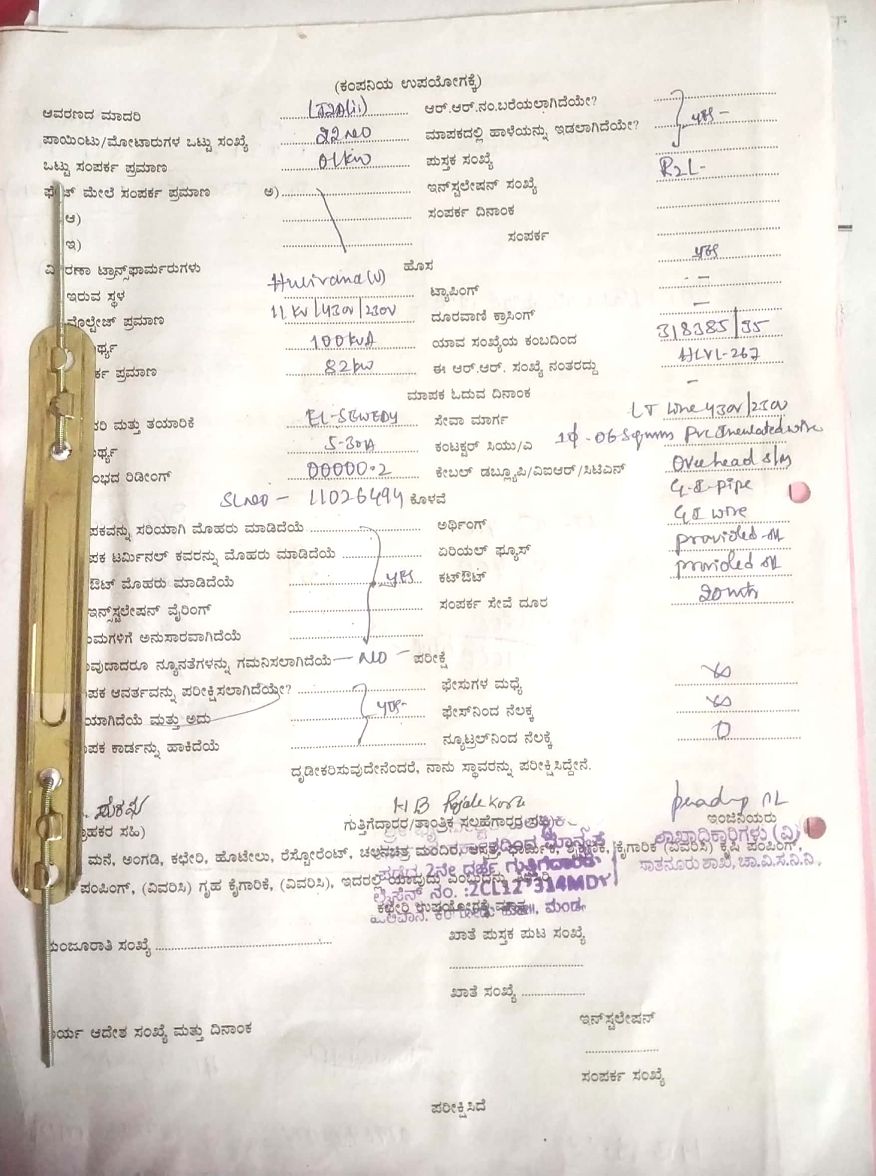 (ಕಂಪನಿಯ ಉಪಯೋಗಕ್ಕೆ)
ಆವರಣದ ಮಾದರಿ LT2A(ii) ಆರ್.ಆರ್.ನಂ.ಬರೆಯಲಾಗಿದೆಯೇ?
ಪಾಯಿಂಟು/ಮೋಟಾರುಗಳ ಒಟ್ಟು ಸಂಖ್ಯೆ 22 NO ಮಾಪಕದಲ್ಲಿ ಹಾಳೆಯನ್ನು ಇಡಲಾಗಿದೆಯೇ? yes -
ಒಟ್ಟು ಸಂಪರ್ಕ ಪ್ರಮಾಣ 01kw ಪುಸ್ತಕ ಸಂಖ್ಯೆ R2L-
ಮೇಲೆ ಸಂಪರ್ಕ ಪ್ರಮಾಣ ಅ) ಇನ್‌ಸ್ಟಲೇಷನ್ ಸಂಖ್ಯೆ
ಆ) ಸಂಪರ್ಕ ದಿನಾಂಕ
ಇ) ಸಂಪರ್ಕ
ರಣಾ ಟ್ರಾನ್ಸ್‌ಫಾರ್ಮರುಗಳು ಹೊಸ yes
ಇರುವ ಸ್ಥಳ Hulivana (V) ಟ್ಯಾಪಿಂಗ್ - -
ವೊಲ್ಟೇಜ್ ಪ್ರಮಾಣ 11 kv/430v/230v ದೂರವಾಣಿ ಕ್ರಾಸಿಂಗ್ -
ರ್ಥ್ಯ 100kvA ಯಾವ ಸಂಖ್ಯೆಯ ಕಂಬದಿಂದ 318385/35
ರ್ಕ ಪ್ರಮಾಣ 82kw ಈ ಆರ್.ಆರ್. ಸಂಖ್ಯೆ ನಂತರದ್ದು HLVL-267
ಮಾಪಕ ಓದುವ ದಿನಾಂಕ -
ರಿ ಮತ್ತು ತಯಾರಿಕೆ EL-SEWEDY ಸೇವಾ ಮಾರ್ಗ LT Line 430v/230v
ರ್ಥ್ಯ 5-30A ಕಂಟಕ್ಟರ್ ಸಿಯು/ಎ 1ϕ-06 Sqmm PVC Insulated wire
ಂಭದ ರಿಡೀಂಗ್ 00000.2 ಕೇಬಲ್ ಡಬ್ಲ್ಯೂಪಿ/ವಿಐಆರ್/ಸಿಟಿಎನ್ Overhead
SL NO - 11026494 ಕೊಳವೆ G.I-pipe
ಪಕವನ್ನು ಸರಿಯಾಗಿ ಮೊಹರು ಮಾಡಿದೆಯೆ ಅರ್ಥಿಂಗ್ GI wire
ಪಕ ಟರ್ಮಿನಲ್ ಕವರನ್ನು ಮೊಹರು ಮಾಡಿದೆಯೆ ಏರಿಯಲ್ ಫ್ಯೂಸ್ provided
ಔಟ್ ಮೊಹರು ಮಾಡಿದೆಯೆ yes ಕಟ್‌ಔಟ್ provided
ಇನ್ಸ್‌ಸ್ಟಲೇಷನ್ ವೈರಿಂಗ್ ಸಂಪರ್ಕ ಸೇವೆ ದೂರ 20mts
ಮಗಳಿಗೆ ಅನುಸಾರವಾಗಿದೆಯೆ
ವುದಾದರೂ ನ್ಯೂನತೆಗಳನ್ನು ಗಮನಿಸಲಾಗಿದೆಯೆ - NO - ಪರೀಕ್ಷೆ
ಪಕ ಆವರ್ತವನ್ನು ಪರೀಕ್ಷಿಸಲಾಗಿದೆಯೇ? ಫೇಸುಗಳ ಮಧ್ಯೆ ∞
ಯಾಗಿದೆಯೆ ಮತ್ತು ಅದು yes- ಫೇಸ್‌ನಿಂದ ನೆಲಕ್ಕೆ ∞
ಪಕ ಕಾರ್ಡನ್ನು ಹಾಕಿದೆಯೆ ನ್ಯೂಟ್ರಲ್‌ನಿಂದ ನೆಲಕ್ಕೆ 0
ದೃಢೀಕರಿಸುವುದೇನೆಂದರೆ, ನಾನು ಸ್ಥಾವರನ್ನು ಪರೀಕ್ಷಿಸಿದ್ದೇನೆ.
ಹಕರ ಸಹಿ) ಗುತ್ತಿಗೆದ್ದಾರರ/ತಾಂತ್ರಿಕ ಸಲ್ಲಹೆಗಾರರ ಇಂಜಿನಿಯರು
ಶಾಖಾಧಿಕಾರಿಗಳು (ವಿ)
ಮನೆ, ಅಂಗಡಿ, ಕಛೇರಿ, ಹೊಟೇಲು, ರೆಸ್ಟೋರೆಂಟ್, ಚಲನಚಿತ್ರ ಮಂದಿರ, ಕೈಗಾರಿಕೆ (ವಿವರಿಸಿ) ಕೃಷಿ ಪಂಪಿಂಗ್,
ಸಾತನೂರು ಶಾಖೆ, ಚಾ.ವಿ.ಸ.ನಿ.ನಿ.,
ಪಂಪಿಂಗ್, (ವಿವರಿಸಿ) ಗೃಹ ಕೈಗಾರಿಕೆ, (ವಿವರಿಸಿ), ಇದರಲ್ಲಿ
2ನೇ ದರ್ಜೆ ಗುತ್ತಿಗೆದಾರರು
ಲೈಸೆನ್ಸ್ ನಂ. :2CL12*314MDY
ಕಛೇರಿ ಉಪಯೋಗಕ್ಕೆ ಮಾತ್ರ
ಮಂಜೂರಾತಿ ಸಂಖ್ಯೆ ಖಾತೆ ಪುಸ್ತಕ ಪುಟ ಸಂಖ್ಯೆ
ಖಾತೆ ಸಂಖ್ಯೆ
ರ್ಯ ಆದೇಶ ಸಂಖ್ಯೆ ಮತ್ತು ದಿನಾಂಕ ಇನ್‌ಸ್ಟಲೇಷನ್
ಸಂಪರ್ಕ ಸಂಖ್ಯೆ
ಪರೀಕ್ಷಿಸಿದೆ